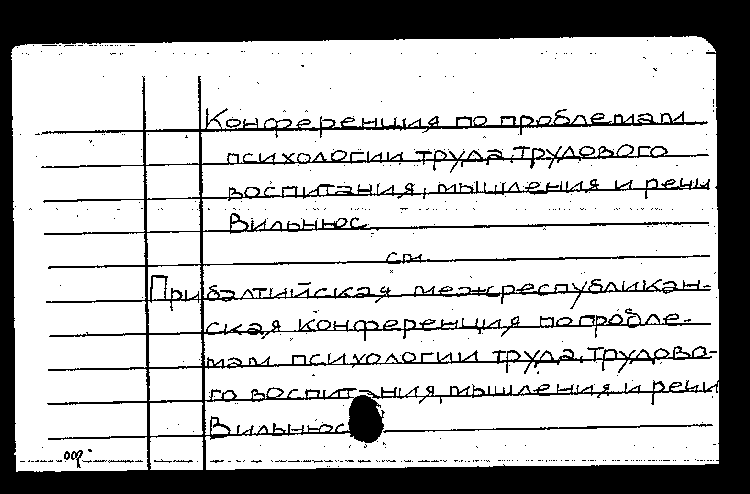 Конференция по проблемам
психологии труда, трудового
воспитания, мышления и речи.
Вильнюс.
см.
Прибалтийская межреспубликан-
ская конференция по пробле-
мам психологии труда, трудово-
го воспитания, мышления и речи
Вильнюс